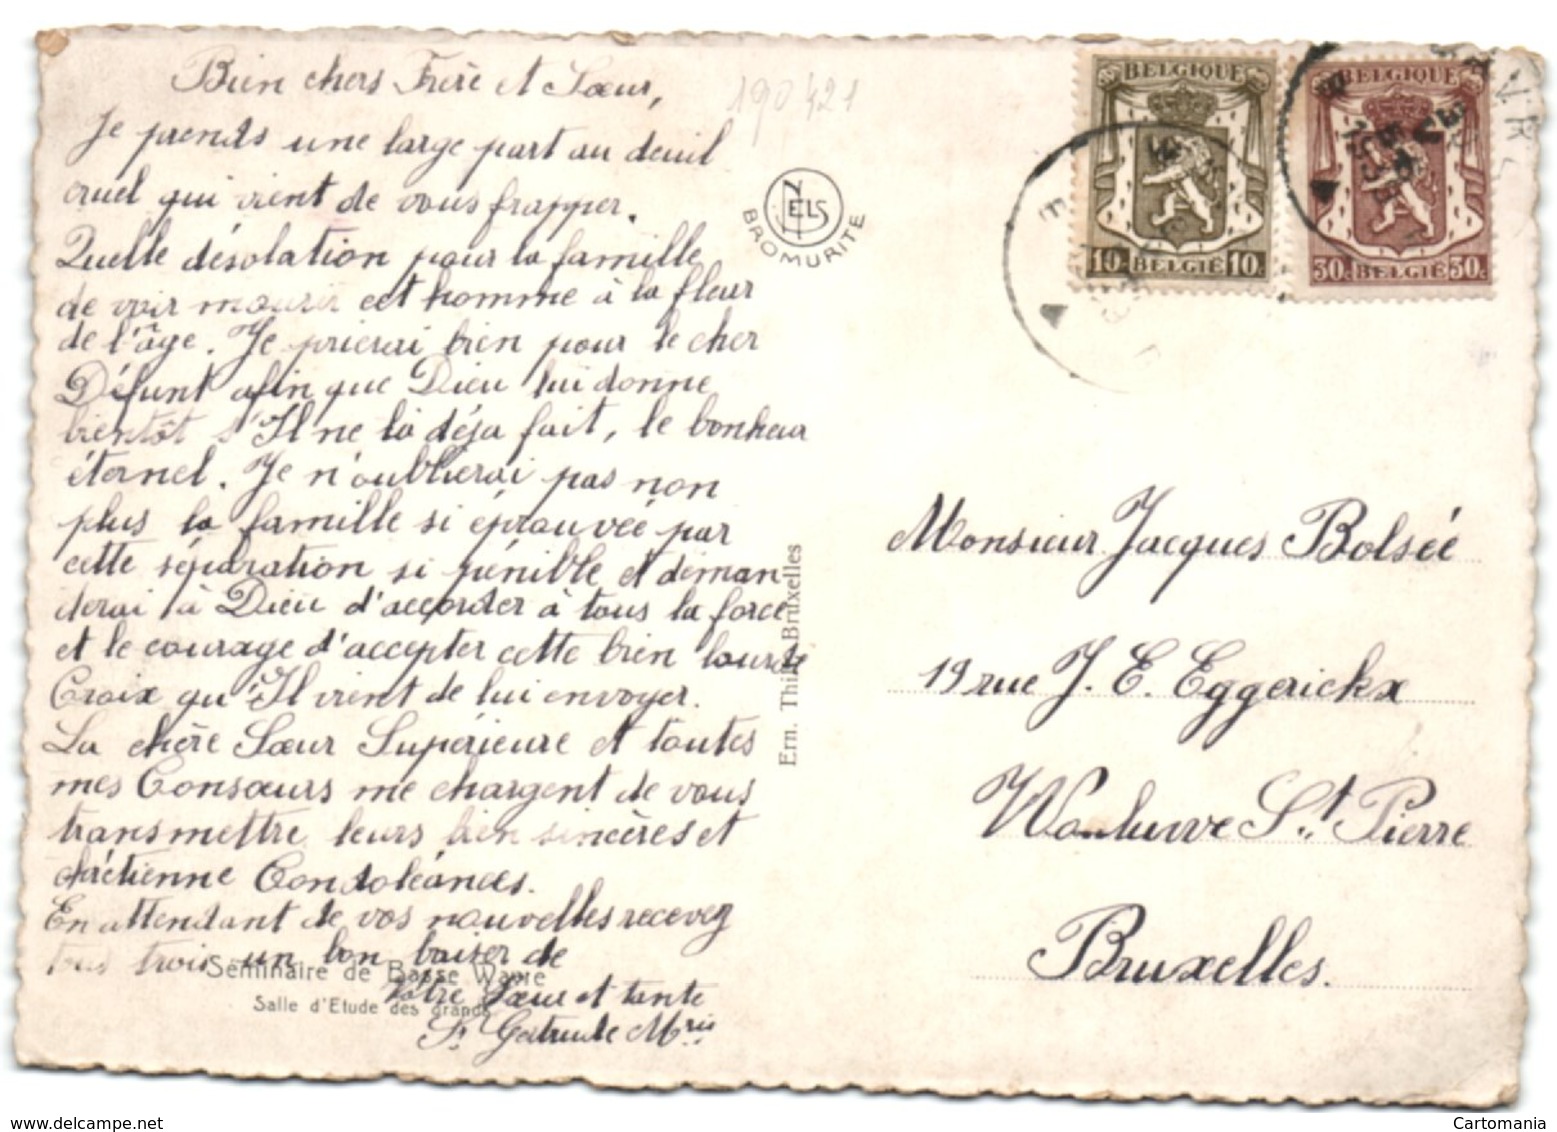 Bien chers Frère et Sœur,
190421
Je prends une large part au deuil
cruel qui vient de vous frapper.
Quelle désolation pour la famille
de voir mourir cet homme à la fleur
de l'âge. Je prierai bien pour le cher
Défunt afin que Dieu lui donne
bientôt s'Il ne la déja fait, le bonheur
éternel. Je n'oublierai pas non
plus la famille si éprouvée par
cette séparation si pénible et deman-
derai à Dieu d'accorder à tous la force
et le courage d'accepter cette bien lourde
Croix qu'Il vient de lui envoyer.
La chère Sœur Supérieure et toutes
mes Consœurs me chargent de vous
transmettre leurs bien sincères et
chrétienne Condoléances.
En attendant de vos nouvelles recevez
tous trois un bon baiser de
Votre Sœur et tante
Sr Gertrude Mrie
Séminaire de Basse Wavre
Salle d'Etude des grands
NELS
BROMURITE
Ern. Thill, Bruxelles
BELGIQUE
10c BELGIË 10c
BELGIQUE
30c BELGIË 30c
Monsieur Jacques Bolsée
19 rue J. E. Eggerickx
Woluwe St Pierre
Bruxelles.
Cartomania